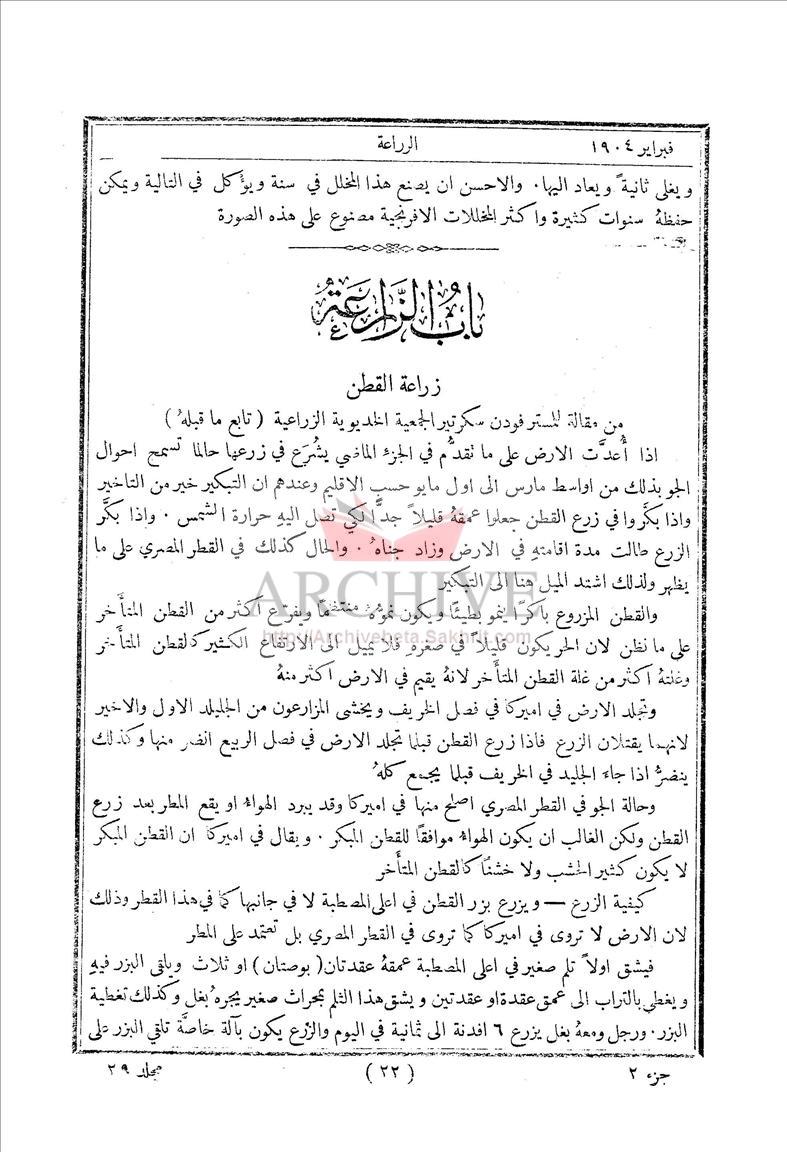 فبراير ١٩٠٤ الزراعة
ويغلى ثانيةً ويعاد اليها. والاحسن ان يصنع هذا المخلل في سنة ويؤكل في التالية ويمكن
حفظهُ سنوات كثيرة واكثر المخللات الافرنجية مصنوع على هذه الصورة
باب الزراعة
زراعة القطن
من مقالة للمستر فودن سكرتير الجمعية الخديوية الزراعية ( تابع ما قبلهُ )
اذا أُعدَّت الارض على ما تقدَّم في الجزء الماضي يشُرَع في زرعها حالما تسمح احوال
الجو بذلك من اواسط مارس الى اول مايو حسب الاقليم وعندهم ان التبكير خير من التاخير
واذا بكَّروا في زرع القطن جعلوا عمقهُ قليلاً جدًّا لكي تصل اليهِ حرارة الشمس . واذا بكَّر
الزرع طالت مدة اقامتهِ في الارض وزاد جناهُ . والحال كذلك في القطر المصري على ما
يظهر ولذلك اشتد الميل هنا الى التبكير
ARCHIVE
والقطن المزروع باكرًا ينمو بطيئًا ويكون نموهُ منتظمًا ويفرّع اكثر من القطن المتأخر
http://Archivebeta.Sakhrit.com
على ما نظن لان الحر يكون قليلاً في صغرهِ فلا يميل الى الارتفاع الكثير كالقطن المتأخر
وغلتهُ اكثر من غلة القطن المتأخر لانهُ يقيم في الارض اكثر منهُ
وتجلد الارض في اميركا في فصل الخريف ويخشى المزارعون من الجليد الاول والاخير
لانهما يقتلان الزرع فاذا زرع القطن قبلما تجلد الارض في فصل الربيع انضر منها وكذلك
ينضرُّ اذا جاء الجليد في الخريف قبلما يجمع كلهُ
وحالة الجو في القطر المصري اصلح منها في اميركا وقد يبرد الهواءُ او يقع المطر بعد زرع
القطن ولكن الغالب ان يكون الهواءُ موافقًا للقطن المبكر . ويقال في اميركا ان القطن المبكر
لا يكون كثير الخشب ولا خشنًا كالقطن المتأخر
كيفية الزرع — ويزرع بزر القطن في اعلى المصطبة لا في جانبها كما في هذا القطر وذلك
لان الارض لا تروى في اميركا كما تروى في القطر المصري بل تعتمد على المطر
فيشق اولاً تلم صغير في اعلى المصطبة عمقهُ عقدتان ( بوصتان ) او ثلاث ويلقى البزر فيهِ
ويغطى بالتراب الى عمق عقدة او عقدتين ويشق هذا التلم بمحراث صغير يجرهُ بغل وكذلك تغطية
البزر. ورجل ومعهُ بغل يزرع ٦ افدنة الى ثمانية في اليوم والزرع يكون بآلة خاصَّة تلقي البزر على
جزء ٢ ( ٢٢ ) مجلد ٢٩